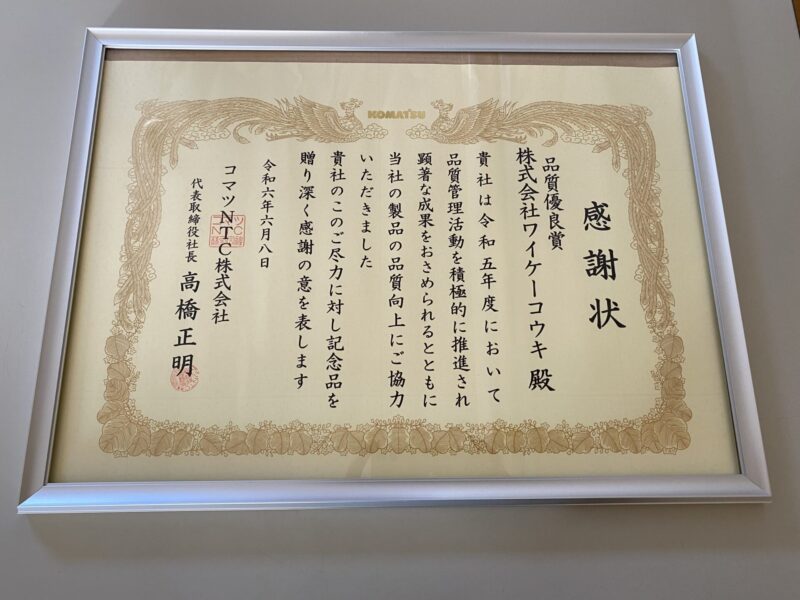 KOMATSU
感謝状
品質優良賞
株式会社ワイケーコウキ 殿
貴社は令和五年度において
品質管理活動を積極的に推進され
顕著な成果をおさめられるとともに
当社の製品の品質向上にご協力
いただきました
貴社のこのご尽力に対し記念品を
贈り深く感謝の意を表します
令和六年六月八日
コマツNTC株式会社
代表取締役社長 高橋正明